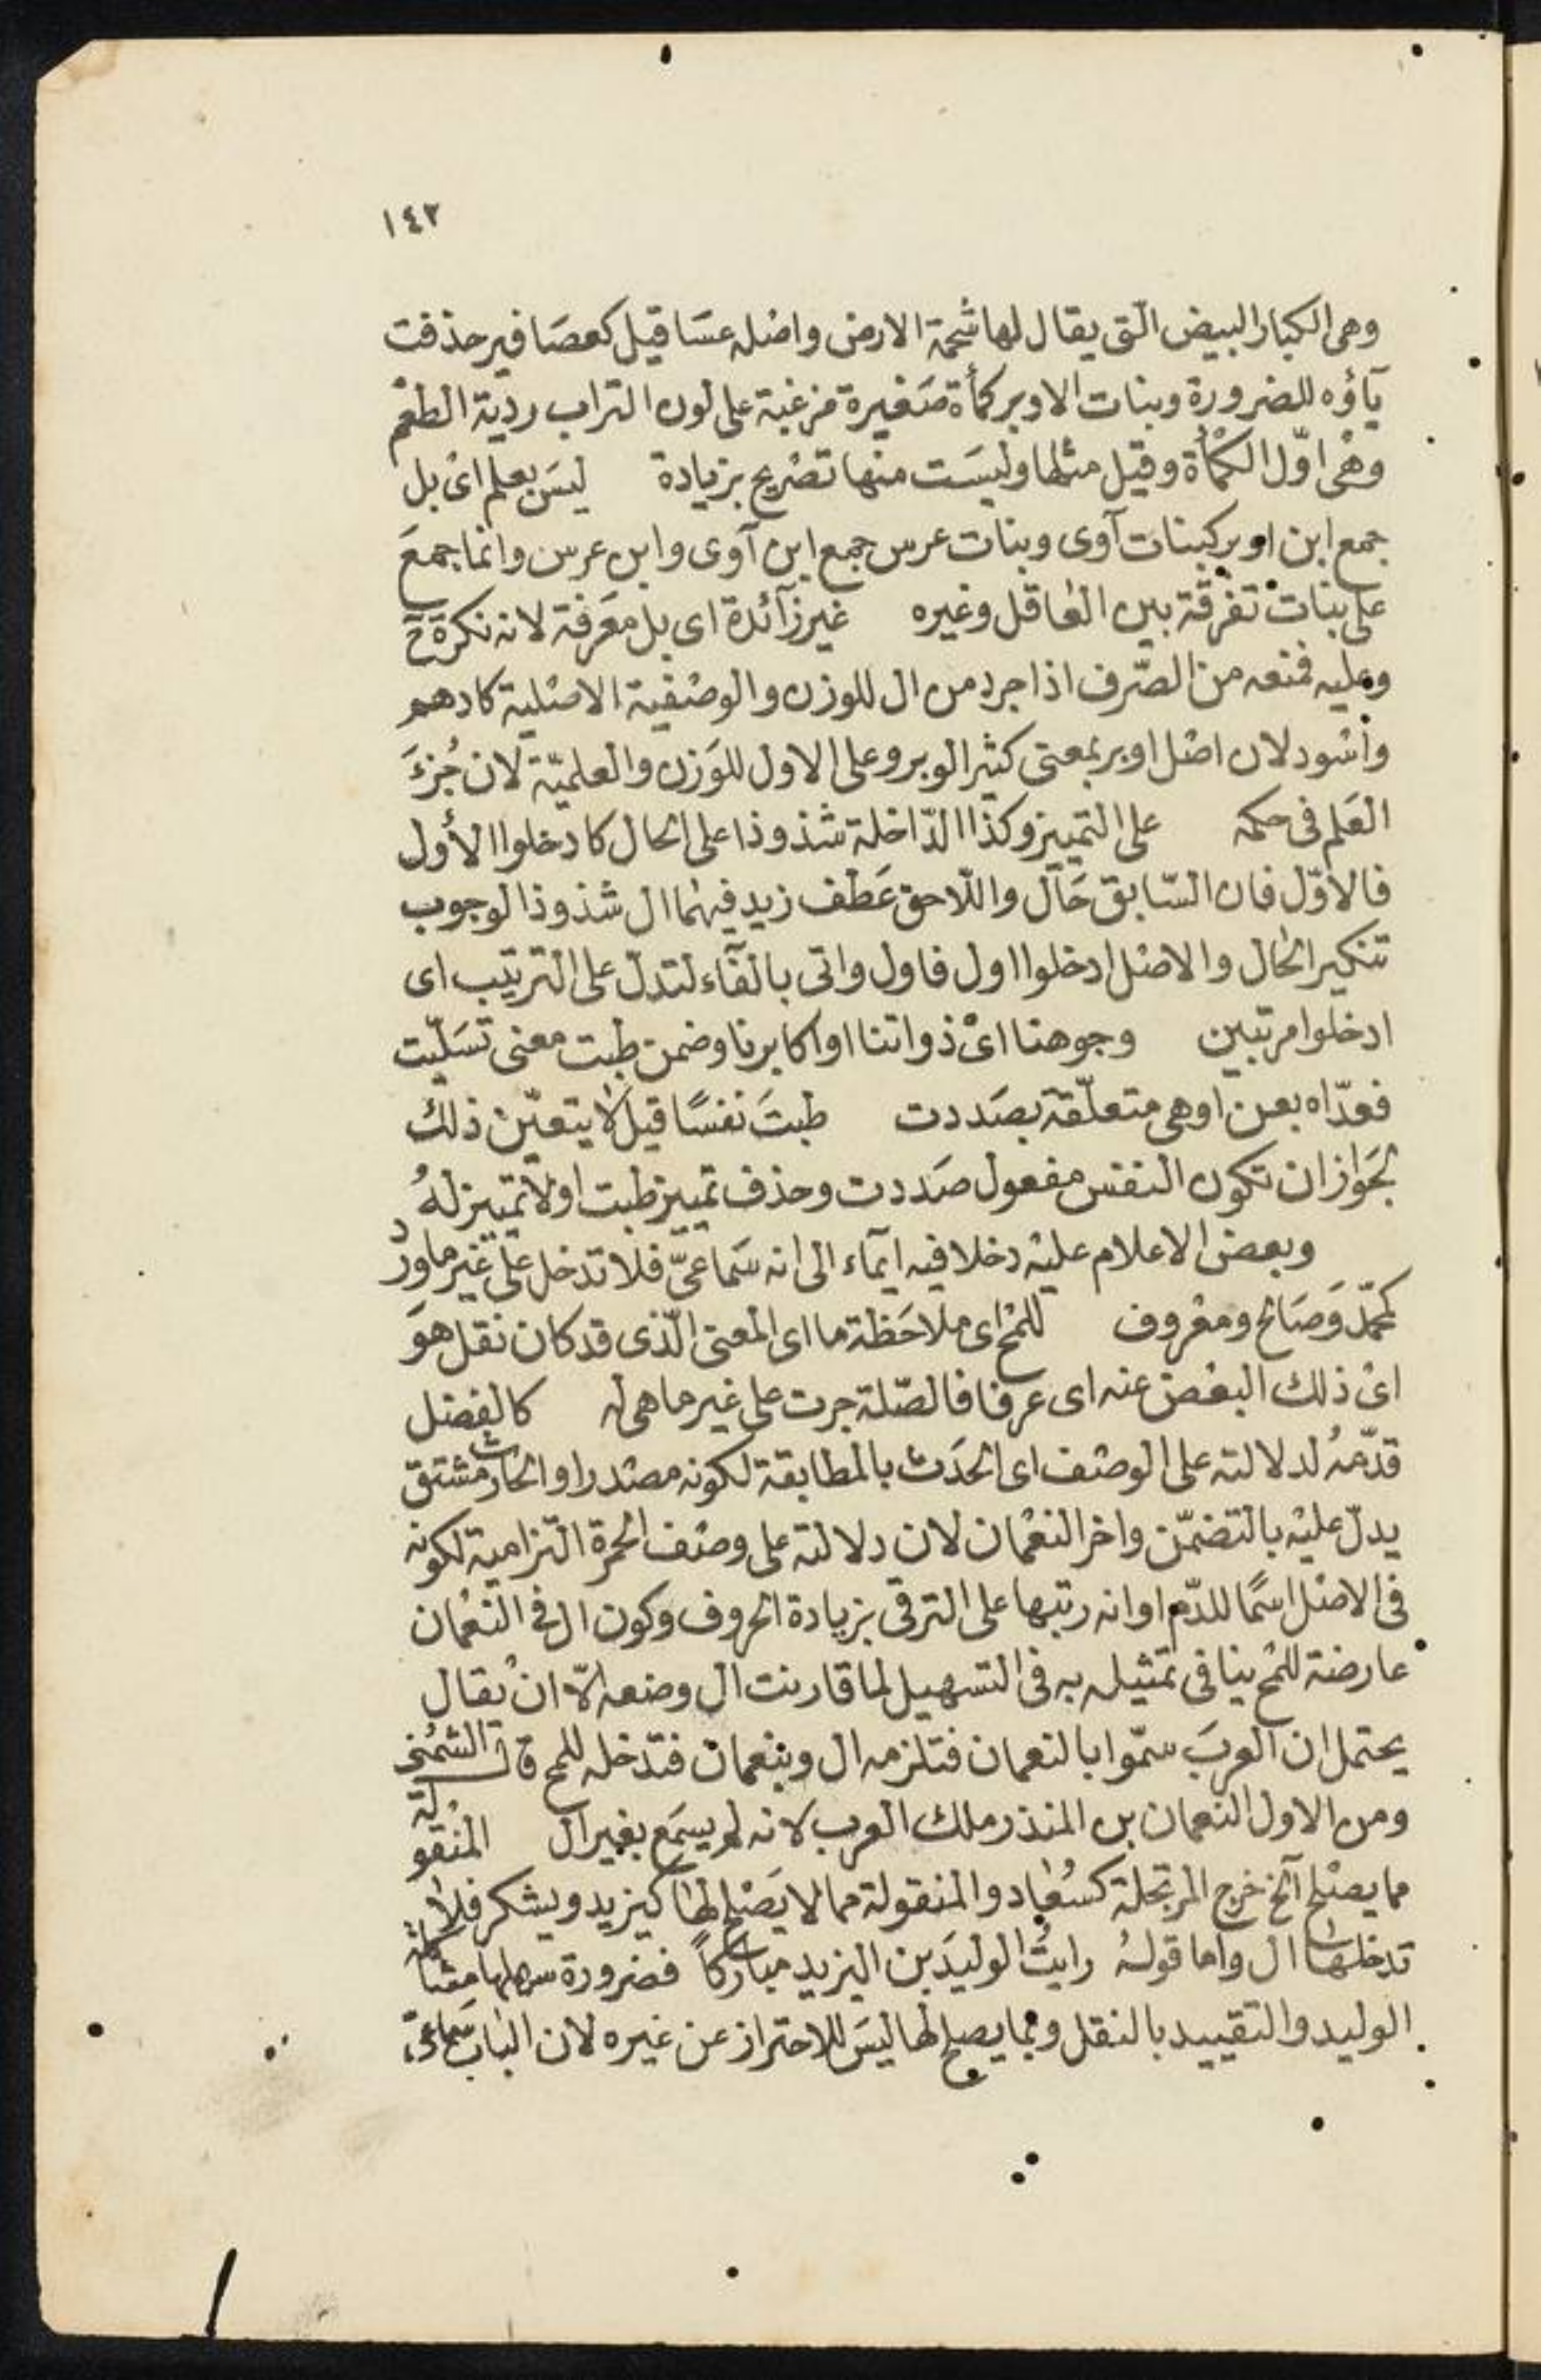 ١٤٢
وهى الكبار البيض الّتى يقال لها شحمة الارض واصْله عسَاقيل كعصَافير حذفت
يآؤه للضرورة وبنات الاوبر كمأة صَغيرة مزغبة على لون التراب ردية الطعْم
وهْى اوّل الكمْأة وقيل مثلها وليسَت منها تصْريح بزيادة ليسَ بعلم اىْ بل
جمع ابن اوبر كبنات آوى وبنات عرس جمع ابن آوى وابن عرس وانما جمعَ
على بنات تفرقة بين العاقل وغيره غير زآئدة اى بل مَعرفة لانه نكرة ح
وعليه فمنعه من الصّرف اذا جرد من ال للوزن والوصْفية الاصْلية كادهم
واسْود لان اصْل اوبر بمعنى كثير الوبر وعلى الاول للوَزن والعلميّة لان جُزءَ
العَلم فى حكمه على التمييز وكذا الدّاخلة شذوذا على الحال كادخلوا الأول
فالاوّل فان السّابق حَال واللّاحق عَطف زيد فيهما ال شذوذا لوجوب
تنكير الحال والاصْل ادخلوا اول فاول واتى بالفآء لتدلّ على الترتيب اى
ادخلوا مرتبين وجوهنا اىْ ذواتنا او اكابرنا وضمن طبت معنى تسَلّيت
فعدّاه بعن او هى متعلّقة بصَددت طبتَ نفسًا قيل لا يتعيّن ذلك
لجَواز ان تكون النفس مفعول صَددت وحذف تمييز طبت اولا تمييز لهُ
وبعض الاعلام عليْه دخلا فيه ايمآء الى انه سَماعىّ فلا تدخل على غير ماورد
كمحمّد وَصَالح ومعْروف للمْح اى ملاحَظة ما اى المعنى الّذى قد كان نقل هوَ
اىْ ذلك البعْض عنه اى عرفا فالصّلة جرت على غير ماهى له كالفضل
قدّمهُ لدلالته على الوصْف اى الحدَث بالمطابقة لكونه مصْدرا والحارث مشتق
يدلّ عليْه بالتضمّن واخر النعْمان لان دلالته على وصْف الحمرة التزامية لكونه
فى الاصْل اسَمًا للدّم او انه رتبها على الترقى بزيادة الحروف وكون ال فى النعْمان
عارضة للمْح ينافى تمثيله به فى التسهيل لما قارنت ال وضعه الّا انْ يُقال
يحتمل ان العربَ سمّوا بالنعمان فتلزمه ال وبنعمان فتدخله للمح قال الشمُنى
ومن الاول النعمان بن المنذر ملك العرب لانه لم يسمَع بغير ال المنقولة
مما يصْلح آلخ خرج المرتجلة كسُعاد والمنقولة مما لا يَصْلح لها كيزيد ويشكر فلا
تدخلها ال واما قولهُ رايتُ الوليدَ بن اليزيد مباركاً فضرورة سهلها مشاكلة
الوليد والتقييد بالنقل وبما يصلح لها ليسَ للاحتراز عن غيره لان الباب سَماعىّ